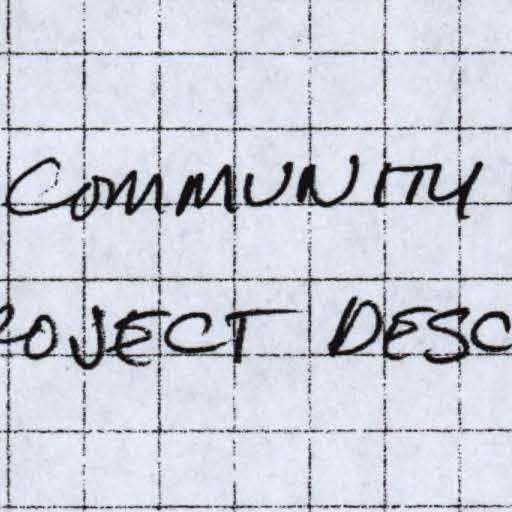 COMMUNITY
ROJECT DESC